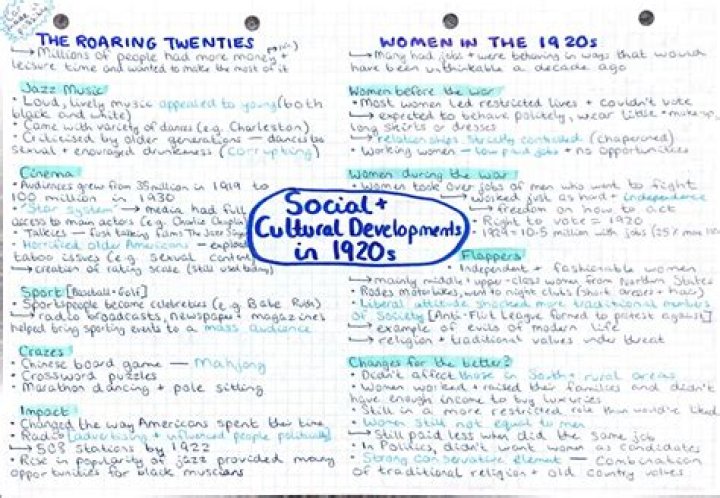 THE ROARING TWENTIES
→ Millions of people had more money +
leisure time and wanted to make the most of it
Jazz Music
• Loud, lively music appealed to young (both
black and white)
• Came with variety of dances (e.g. Charleston)
• Criticised by older generations — dances too
sexual + encouraged drunkeness (corrupting)
Cinema
• Audiences grew from 35 million in 1919 to
100 million in 1930
• "Star system" → media had full
access to main actors (e.g. Charlie Chaplin)
• Talkies — first talking films The Jazz Singer
• Horrified older Americans — explored
taboo issues (e.g. sexual content)
→ creation of rating scale (still used today)
Sport [Baseball + Golf]
• Sportspeople became celebrities (e.g. Babe Ruth)
→ radio broadcasts, newspaper + magazines
helped bring sporting events to a mass audience
Crazes
• Chinese board game — Mahjong
• Crossword puzzles
• Marathon dancing + pole sitting
Impact
• Changed the way Americans spent their time
• Radio [advertising + influenced people politically]
→ 508 stations by 1922
• Rise in popularity of jazz provided many
opportunities for black musicians
Social +
Cultural Developments
in 1920s
WOMEN IN THE 1920s
→ Many had jobs + were behaving in ways that would
have been unthinkable a decade ago
Women before the war
• Most women led restricted lives + couldn't vote
→ expected to behave politely, wear little make-up,
long skirts or dresses
→ relationships strictly controlled (chaperoned)
• Working women — low paid jobs + no opportunities
Women during the war
• Women took over jobs of men who went to fight
→ worked just as hard + independence
→ freedom on how to act
• Right to vote = 1920
• 1929 = 10.5 million with jobs (25% more
Flappers
• Independent + fashionable women
→ mainly middle + upper-class women from Northern States
• Rodes motorbikes, went to night clubs (short dresses + hair)
• Liberal attitude shocked more traditional members
of society [Anti-Flirt League formed to protest against]
→ example of evils of modern life
→ religion + traditional values under threat
Changes for the better?
• Didn't affect those in South + rural areas
• Women worked + raised their families and didn't
have enough income to buy luxuries
• Still in a more restricted role than would've liked
• Women still not equal to men
→ Still paid less when did the same job
• In Politics, didn't want women as candidates
• Strong conservative element — combination
of traditional religion + old country values